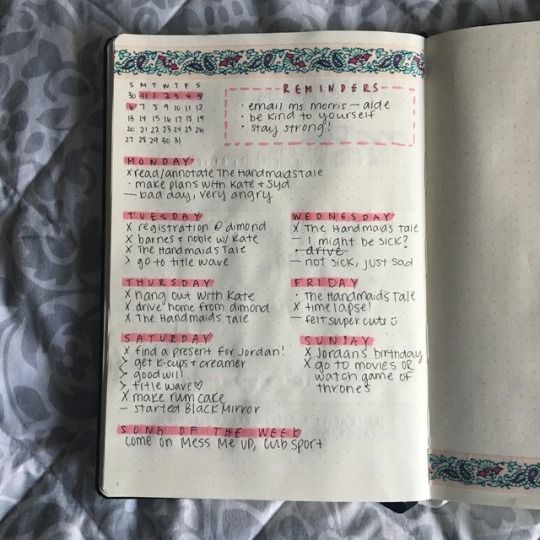 S M T W T F S
30 31 1 2 3 4 5
6 7 8 9 10 11 12
13 14 15 16 17 18 19
20 21 22 23 24 25 26
27 28 29 30 31
REMINDERS
· email ms. morris — aide
· be kind to yourself
· stay strong!
MONDAY
x read/annotate The Handmaids Tale
· make plans with Kate + Syd
— bad day, very angry
TUESDAY
x registration @ dimond
x barnes + noble w/ Kate
x The Handmaid's Tale
> go to title wave
WEDNESDAY
x The Handmaid's Tale
— I might be sick?
· drive
— not sick, just sad
THURSDAY
x hang out with Kate
x drive home from dimond
x The Handmaid's Tale
FRIDAY
· The Handmaid's Tale
x time lapse!
— felt super cute ☺
SATURDAY
x find a present for Jordan!
> get K-cups + creamer
> goodwill
> title wave ♡
x make rum cake
— started Black Mirror
SUNDAY
x Jordan's birthday
x go to movies OR
watch game of
thrones
SONG OF THE WEEK
come on Mess Me Up, Cub Sport